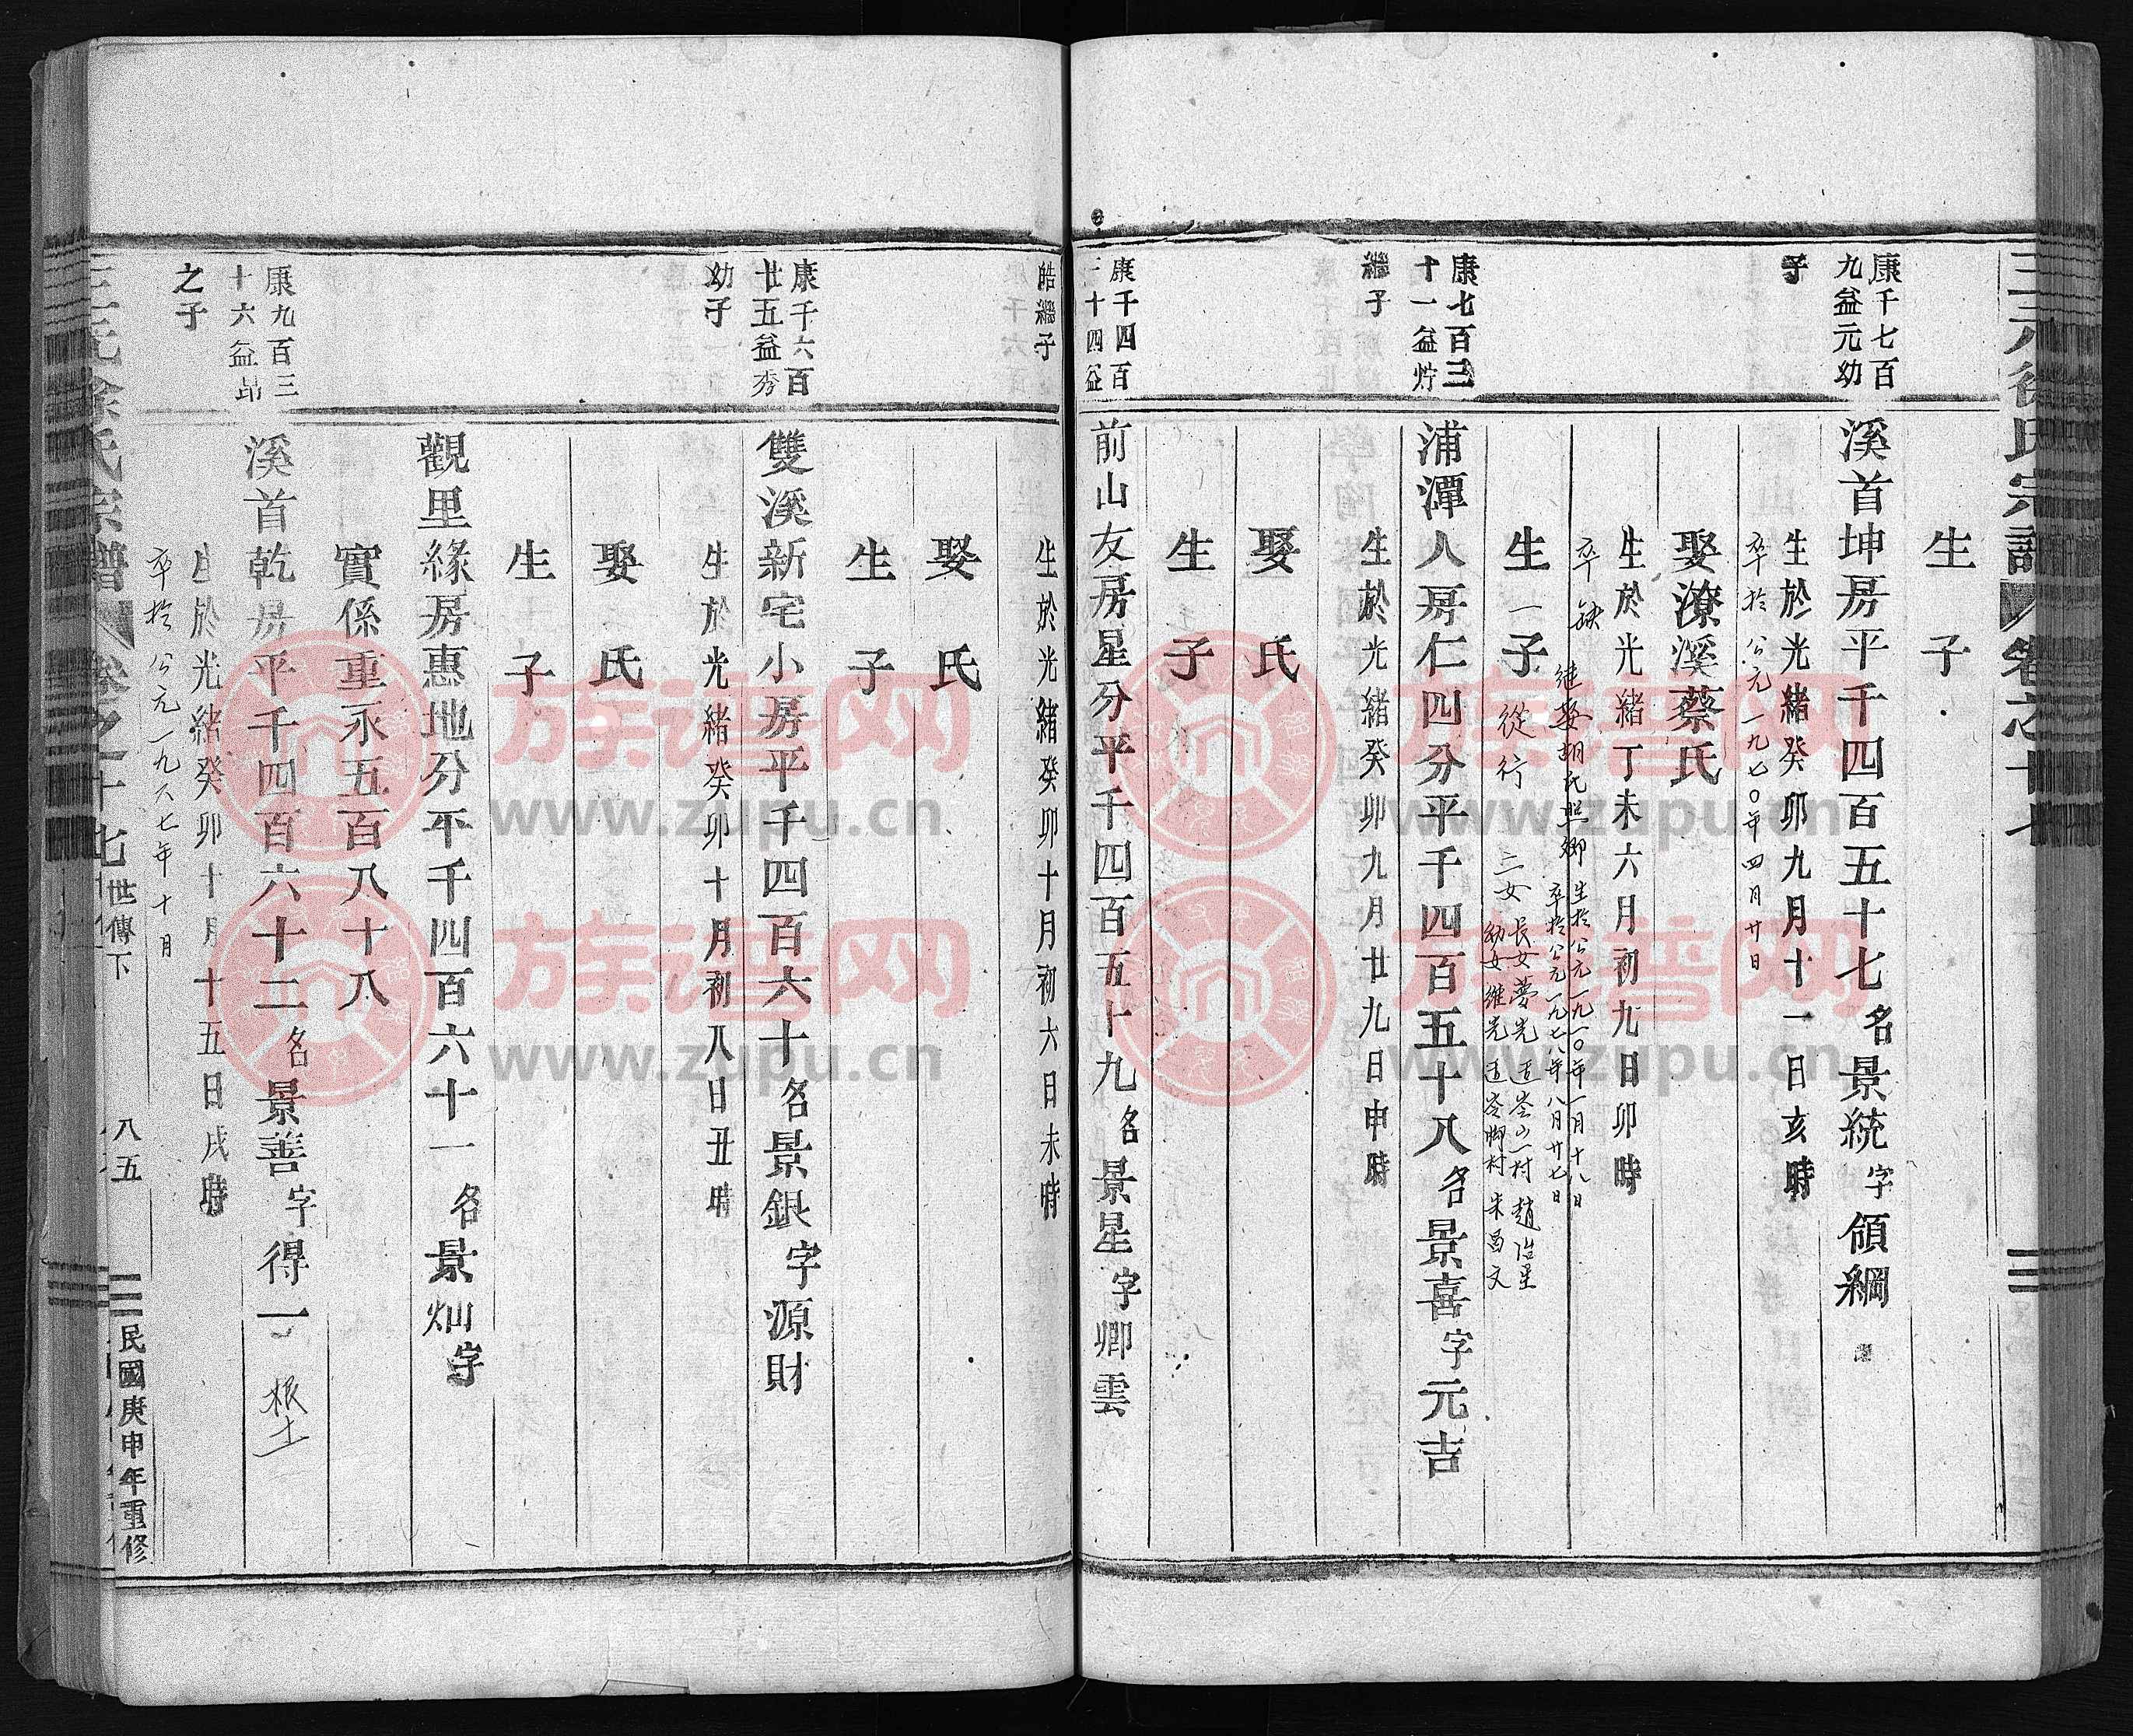 生子
康千七百
九益元幼
子
溪首坤房平千四百五十七名景統字領綱
生於光緒癸卯九月十一日亥時
卒於公元一九七〇年四月廿日
娶潦溪蔡氏
生於光緒丁未六月初九日卯時
卒缺
继娶胡氏照卿
生於公元一九一〇年一月十八日
卒於公元一九七八年八月廿七日
生一子從行
三女長女夢光适岺山村趙治生
幼女维光适岺脚村朱昌文
康七百三
十一益竚
繼子
浦潭人房仁四分平千四百五十八名景喜字元吉
生於光緒癸卯九月廿九日申時
娶氏
生子
康千四百
三十四益
前山友房星分平千四百五十九名景星字卿雲
皓繼子
生於光緒癸卯十月初六日未時
娶氏
生子
康千六百
廿五益秀
幼子
雙溪新宅小房平千四百六十名景銀字源財
生於光緒癸卯十月初八日丑時
娶氏
生子
觀里緣房惠地分平千四百六十一名景灿字
實係重永五百八十八
康九百三
十六益昂
之子
溪首乾房平千四百六十二名景善字得一
根土
生於光緒癸卯十月十五日戌時
卒於公元一九八七年十月
徐氏宗譜
卷之十七
世傳下
八五
民國庚申年重修
族谱网
www.zupu.cn
族谱网
www.zupu.cn
族谱网
www.zupu.cn
族谱网
www.zupu.cn